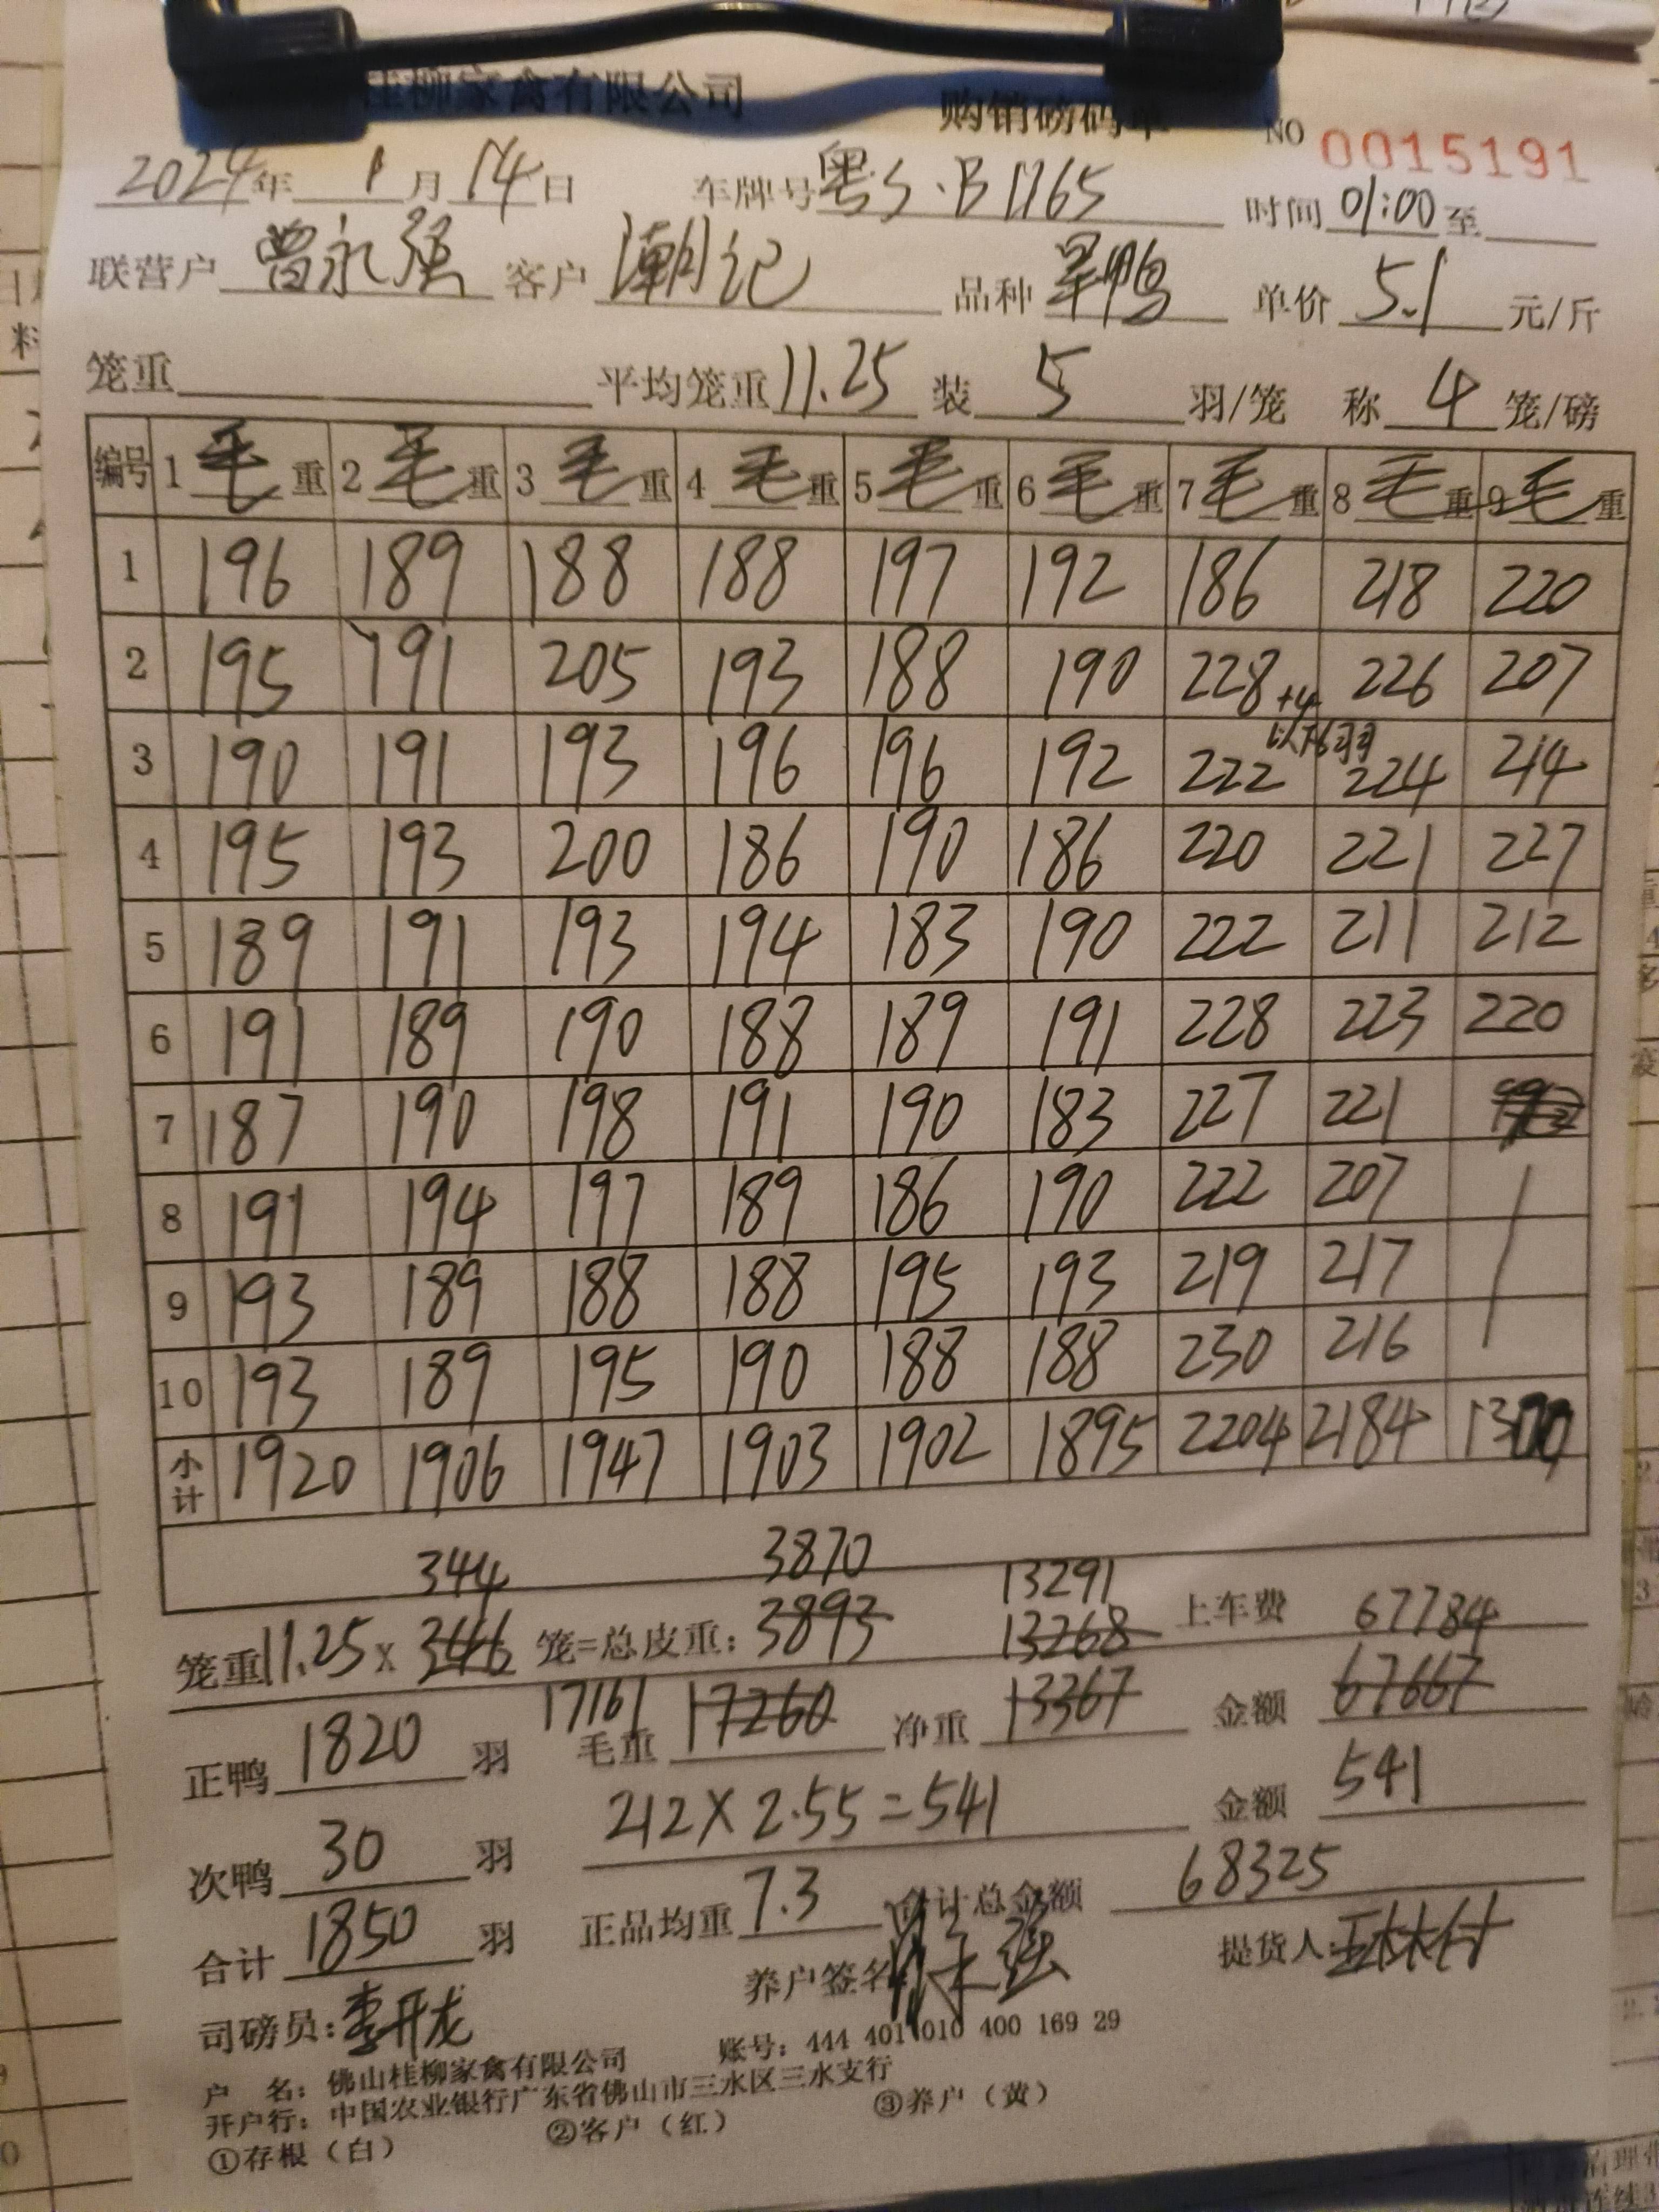 桂柳家禽有限公司 购销磅码单 NO 0015191
2024年 1月 14日 车牌号 粤S·B1765 时间 01:00 至
联营户 曾永强 客户 潮记 品种 旱鸭 单价 5.1 元/斤
笼重 平均笼重 11.25 装 5 羽/笼 称 4 笼/磅
编号 1 毛重 2 毛重 3 毛重 4 毛重 5 毛重 6 毛重 7 毛重 8 毛重 9 毛重
1 196 189 188 188 197 192 186 218 220
2 195 191 205 193 188 190 228 +4 226 207
以下6羽
3 190 191 193 196 196 192 222 224 214
4 195 193 200 186 190 186 220 221 227
5 189 191 193 194 183 190 222 211 212
6 191 189 190 188 189 191 228 223 220
7 187 190 198 191 190 183 227 221
8 191 194 197 189 186 190 222 207
9 193 189 188 188 195 193 219 217
10 193 189 195 190 188 188 230 216
小计 1920 1906 1947 1903 1902 1895 2204 2184 1300
344 3870 13291
笼重 11.25 x 346 笼=总皮重: 3893 13268 上车费 67784
正鸭 1820 羽 17161 毛重 17260 净重 13367 金额 67667
212 X 2.55 = 541 金额 541
次鸭 30 羽
合计 1850 羽 正品均重 7.3 合计总金额 68325
司磅员: 李开龙 养户签名 提货人:
户 名: 佛山桂柳家禽有限公司 账号: 444 401 010 400 169 29
开户行: 中国农业银行广东省佛山市三水区三水支行
①存根（白） ②客户（红） ③养户（黄）